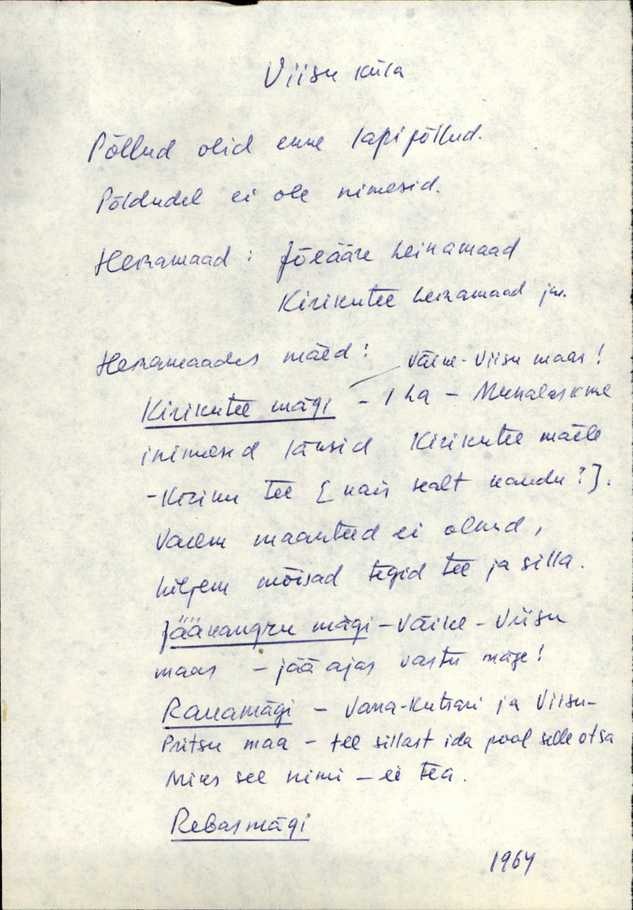 Viisu küla
Põllud olid enne lapipõllud.
Põldudel ei ole nimesid.
Heinamaad: Jõeääre heinamaad
Kirikutee heinamaad jm.
Heinamaades mäed:
Väike-Viisu maas!
Kirikutee mägi - 1 ha - Munalaskme
inimesed käisid Kirikutee mäele
- Kiriku tee [käis sealt kaudu?].
Varem maanteed ei olnud,
hiljem mõisad tegid tee ja silla.
Jäähangru mägi - Väike-Viisu
maas - jää ajas vastu mäge!
Rauamägi - Vana- ja Viisu-
Pritsu maa - tee sillast ida pool selle otsa
Miks see nimi - ei tea.
Rebasmägi
1964